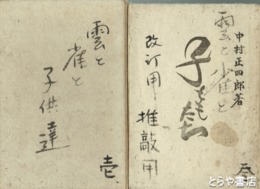 雲と
雀と
子供達
壱
中村正四郎著
雲と雀と
子ども
改訂用・推敲用
とらや書店